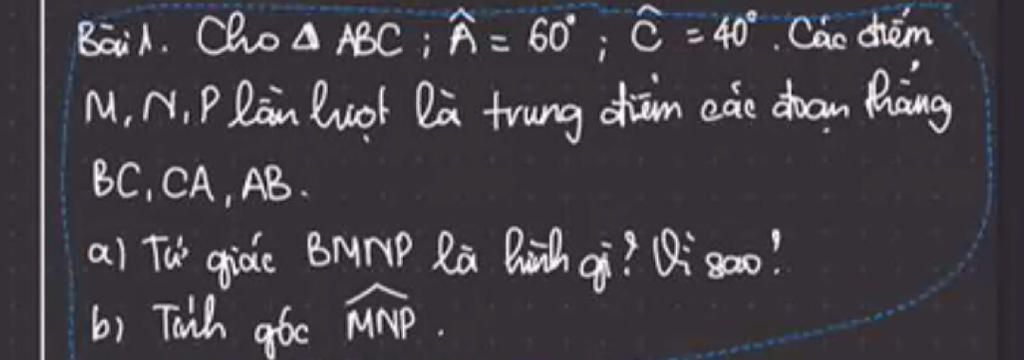 Bài 1. Cho Δ ABC ; Â = 60° ; Ĉ = 40°. Các điểm
M, N, P lần lượt là trung điểm các đoạn thẳng
BC, CA, AB.
a) Tứ giác BMNP là hình gì? Vì sao?
b) Tính góc \widehat{MNP}.